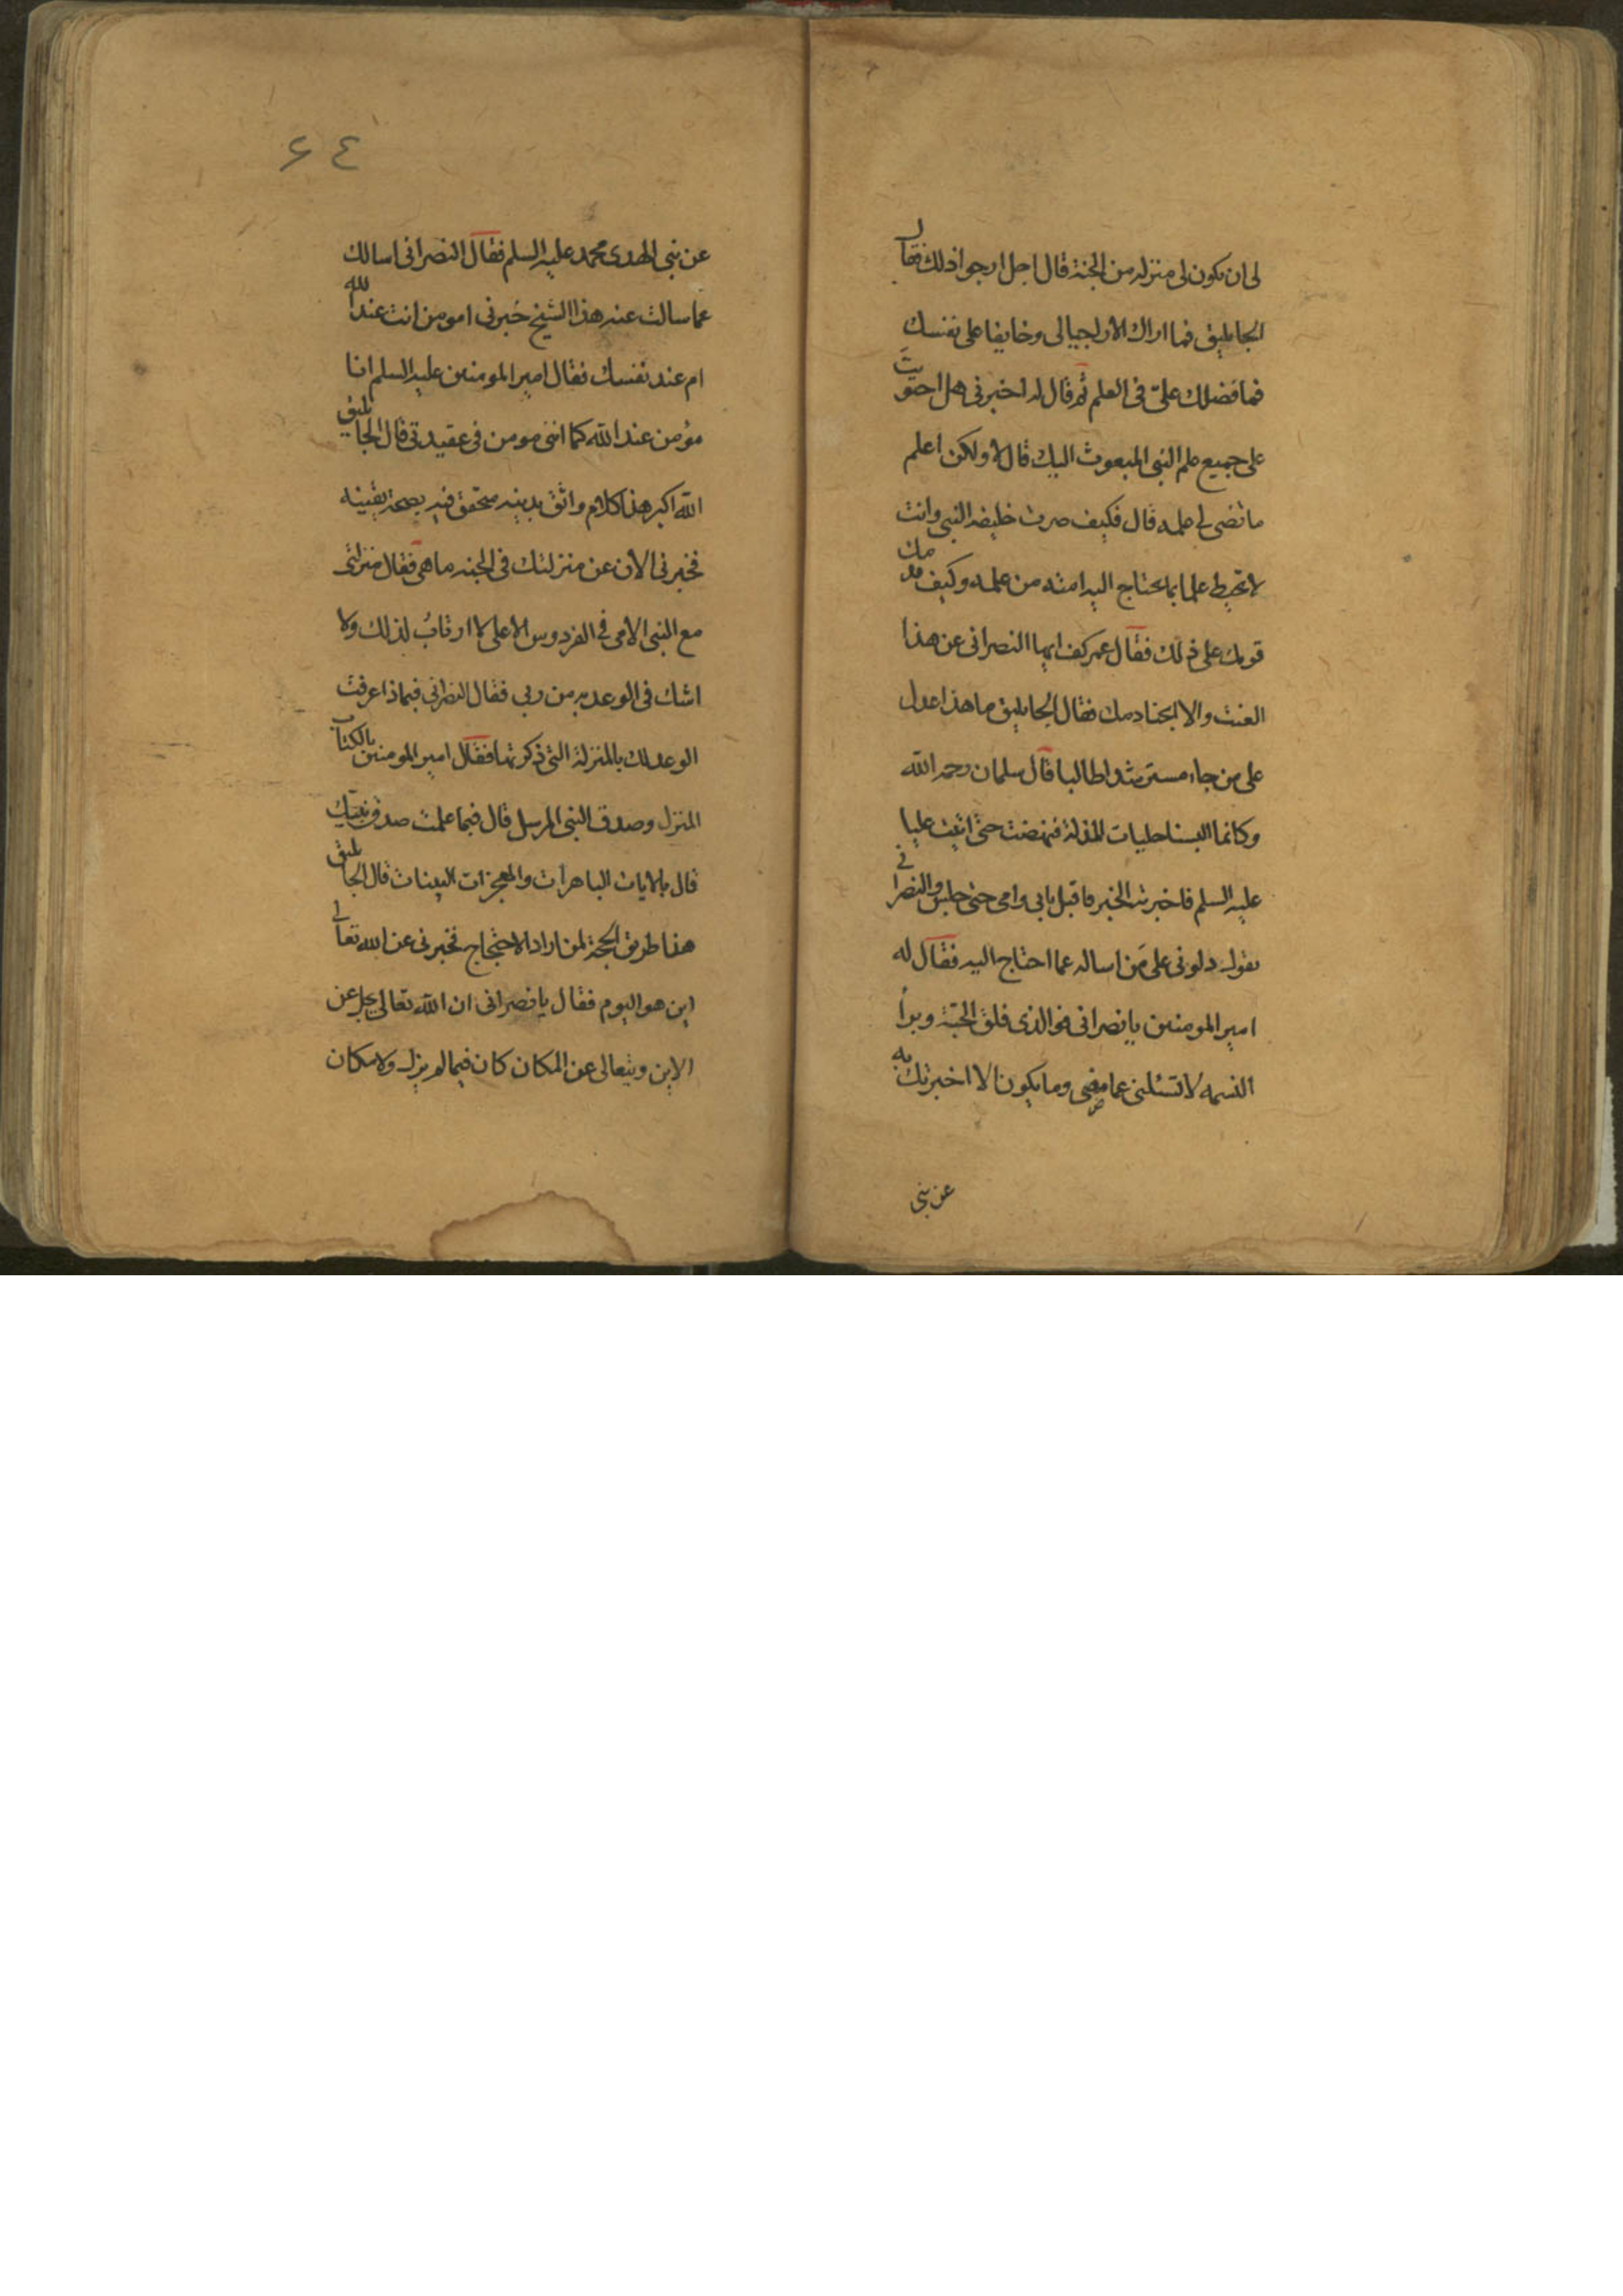 لى ان يكون لى منزله من الجنة قال اجل ارجوا ذلك فقال
الجاثليق فما اراك الا راجيا لى وخايفا على نفسك
فما فضلك علىّ فى العلم ثم قال له اخبرنى هل احتويت
على جميع علم النبى المبعوث اليك قال لا ولكن اعلم
ما قضى لى علمه قال فكيف صرت خليفه النبى وانت
لا تحيط علما بما يحتاج اليه امته من علمه وكيف قدمك
قومك على ذلك فقال عمر كف ايها النصرانى عن هذا
العنت والا ابحنا دمك فقال الجاثليق ما هذا عدل
على من جاء مسترشدا طالبا قال سلمان رحمه الله
وكانما البسنا جلبات المذلة فنهضت حتى اتيت عليا
عليه السلم فاخبرته الخبر فاقبل بابى وامى حتى جلس والنصرانى
يقول دلونى على مَن اساله عما احتاج اليه فقال له
امير المومنين يا نصرانى فوالذى فلق الحبّة وبرأ
النسمه لا تسئلنى عما مضى وما يكون الا اخبرتك به
عن نبى
٤٤
عن نبى الهدى محمد عليه السلم فقال النصرانى اسالك
عما سالت عنه هذا الشيخ خبرنى امومن انت عند الله
ام عند نفسك فقال امير المومنين عليه السلم انا
مؤمن عند الله كما اننى مومن فى عقيدتى قال الجاثليق
الله اكبر هذا كلام واثق بدينه متحقق فيه بصحة يقينه
فخبرنى الان عن منزلتك فى الجنه ما هى فقال منزلتى
مع النبى الامى فى الفردوس الاعلى لا ارتابُ لذلك ولا
اشك فى الوعد به من ربى فقال النصرانى فبماذا عرفت
الوعد لك بالمنزلة التى ذكرتها فقال امير المومنين بالكتاب
المنزل وصدق النبى المرسل قال فبما علمت صدق نبيّك
قال بالايات الباهرات والمعجزات البينات قال الجاثليق
هذا طريق الحجة لمن اراد الاحتجاج فخبرنى عن الله تعالى
اين هو اليوم فقال يا نصرانى ان الله تعالى يجل عن
الاين ويتعالى عن المكان كان فيما لم يزل ولا مكان